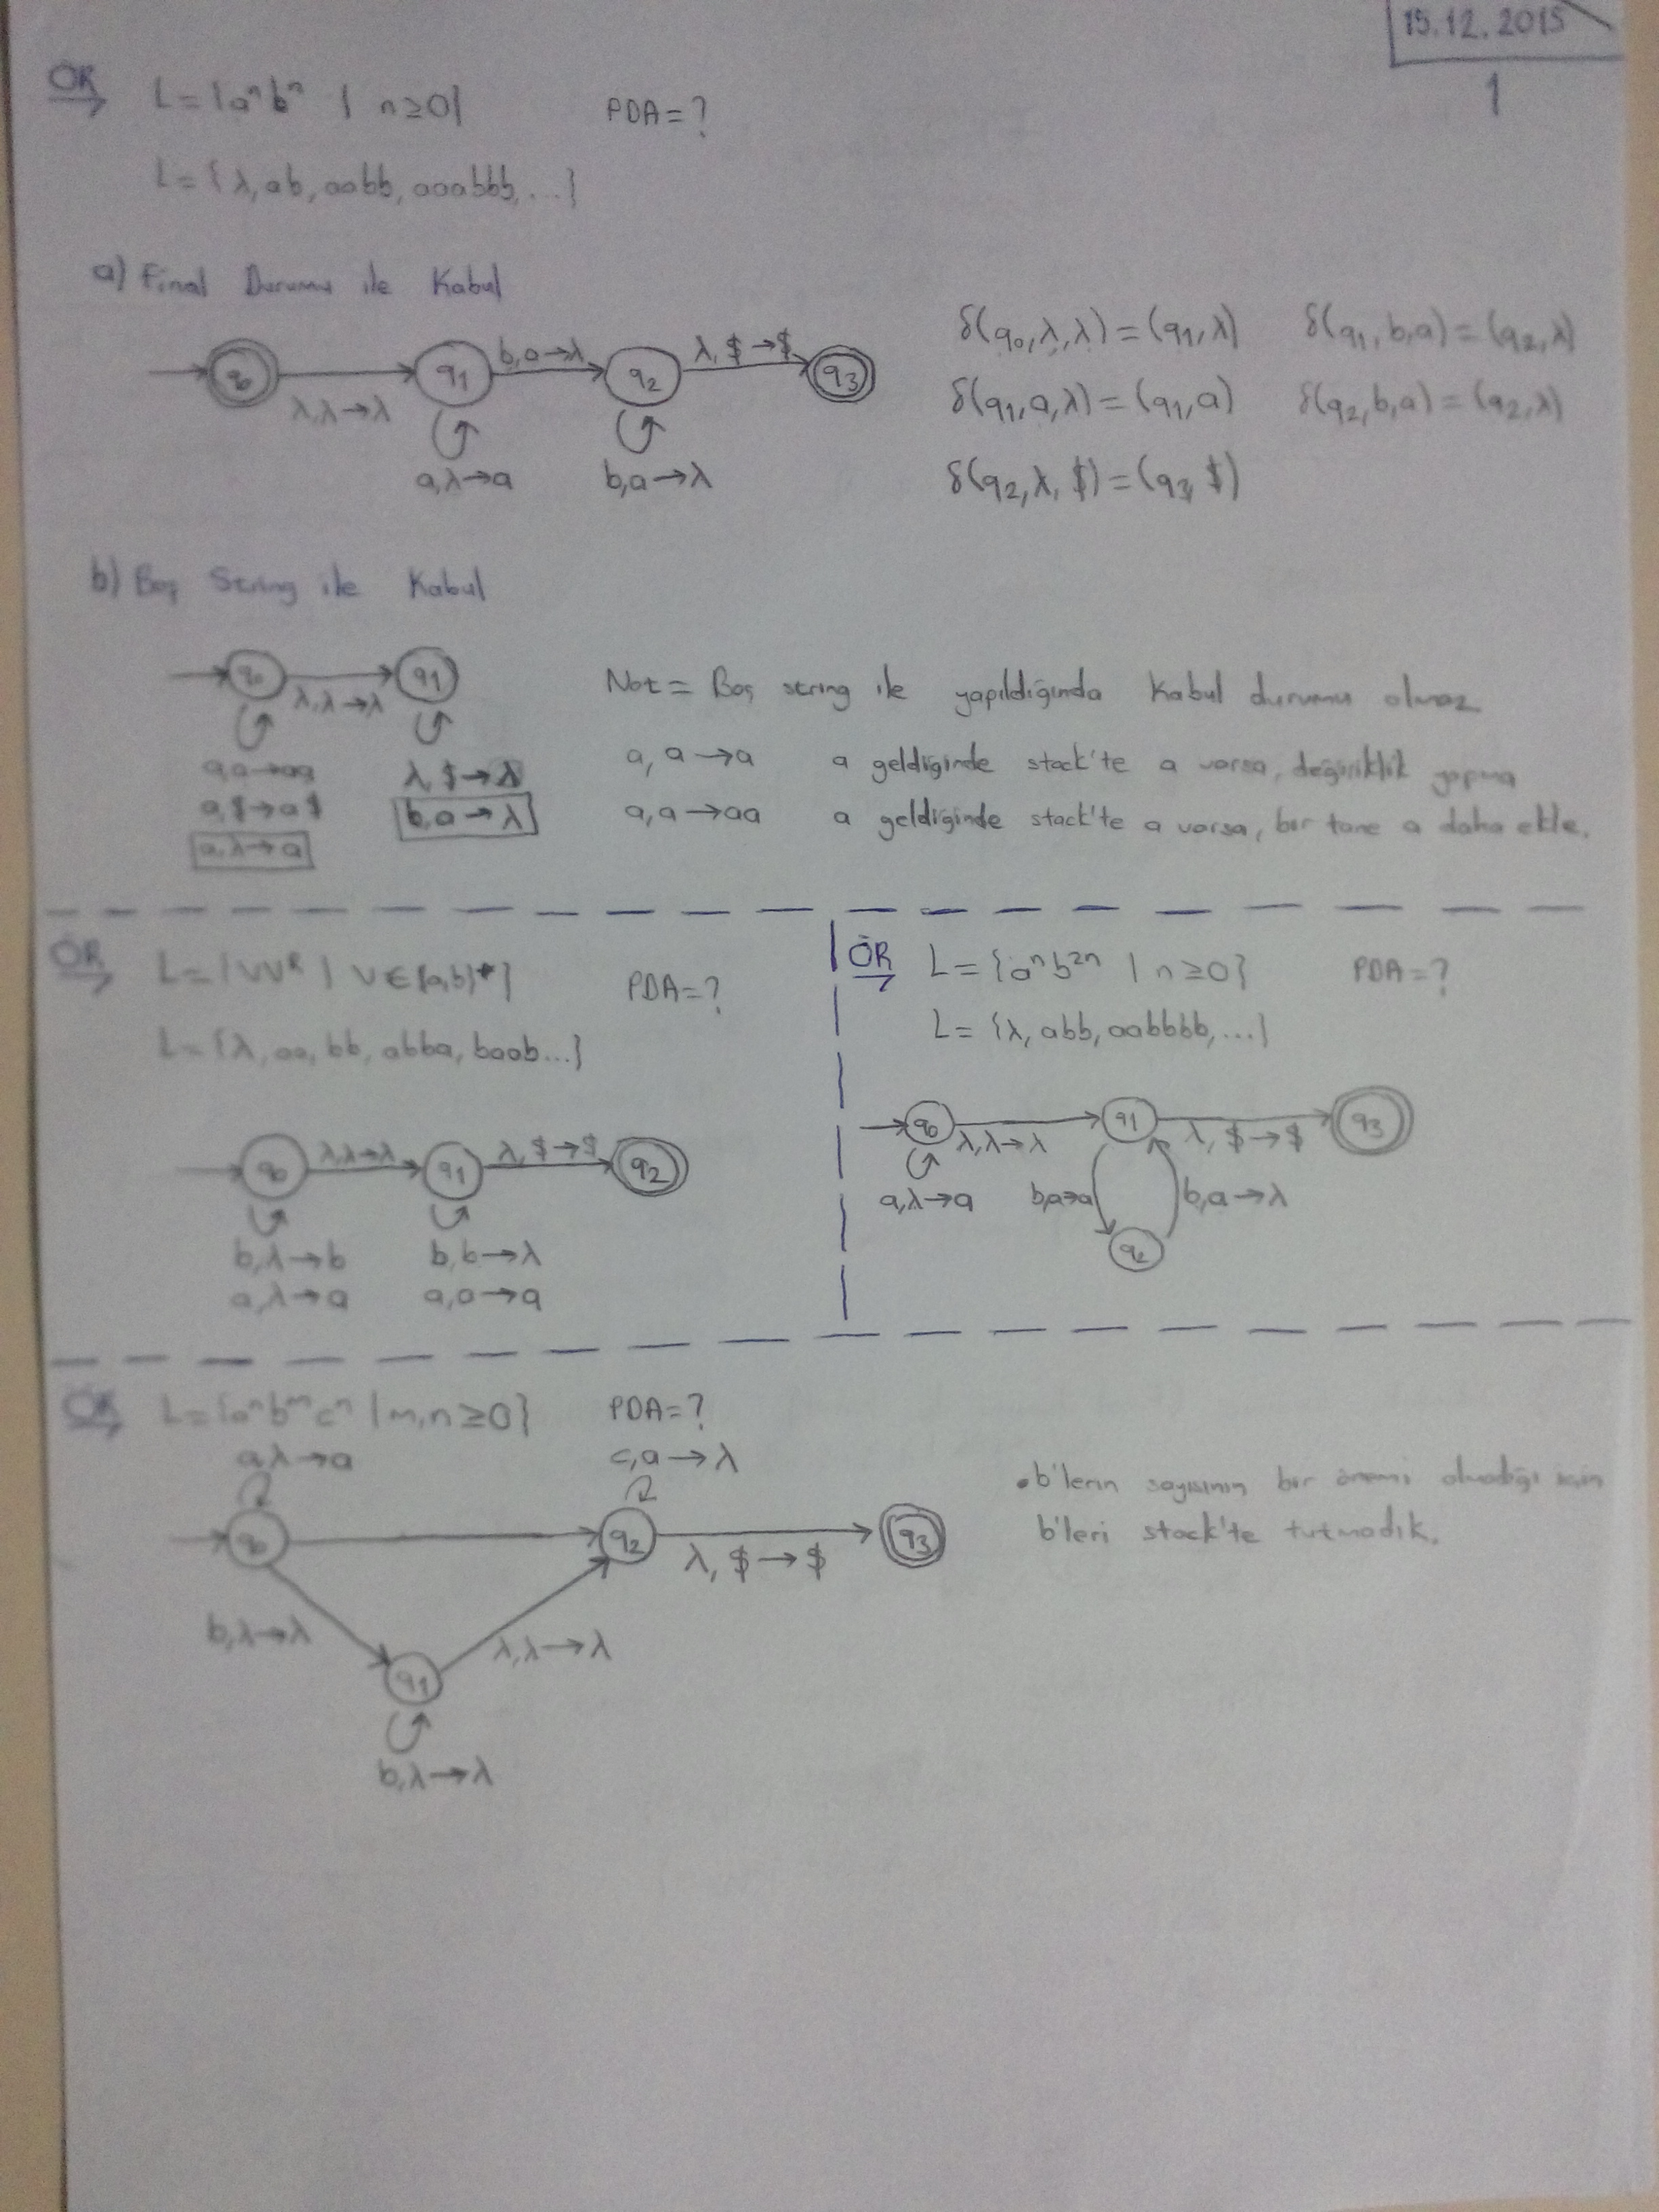 15.12.2015
1
ÖR L = {aⁿbⁿ | n≥0} PDA=?
L = {λ, ab, aabb, aaabbb, ...}
a) Final Durumu ile Kabul
q0 λ,λ→λ q1 b,a→λ q2 λ,$→$ q3
a,λ→a b,a→λ
δ(q0,λ,λ) = (q1,λ) δ(q1,b,a) = (q2,λ)
δ(q1,a,λ) = (q1,a) δ(q2,b,a) = (q2,λ)
δ(q2,λ,$) = (q3,$)
b) Boş String ile Kabul
q0 λ,λ→λ q1
a,a→aa λ,$→λ
a,$→a$ b,a→λ
a,λ→a
Not = Boş string ile yapıldığında Kabul durumu olmaz
a,a→a a geldiğinde stack'te a varsa, değişiklik yapma
a,a→aa a geldiğinde stack'te a varsa, bir tane a daha ekle.
ÖR L = {VVᴿ | V∈{a,b}*} PDA=?
L = {λ, aa, bb, abba, baab...}
q0 λ,λ→λ q1 λ,$→$ q2
b,λ→b b,b→λ
a,λ→a a,a→a
ÖR L = {aⁿb²ⁿ | n≥0} PDA=?
L = {λ, abb, aabbbb, ...}
q0 λ,λ→λ q1 λ,$→$ q3
a,λ→a b,a→a b,a→λ
q2
ÖR L = {aⁿbᵐcⁿ | m,n≥0} PDA=?
a,λ→a c,a→λ
q0 q2 λ,$→$ q3
b,λ→λ λ,λ→λ
q1
b,λ→λ
• b'lerin sayısının bir önemi olmadığı için
b'leri stack'te tutmadık.